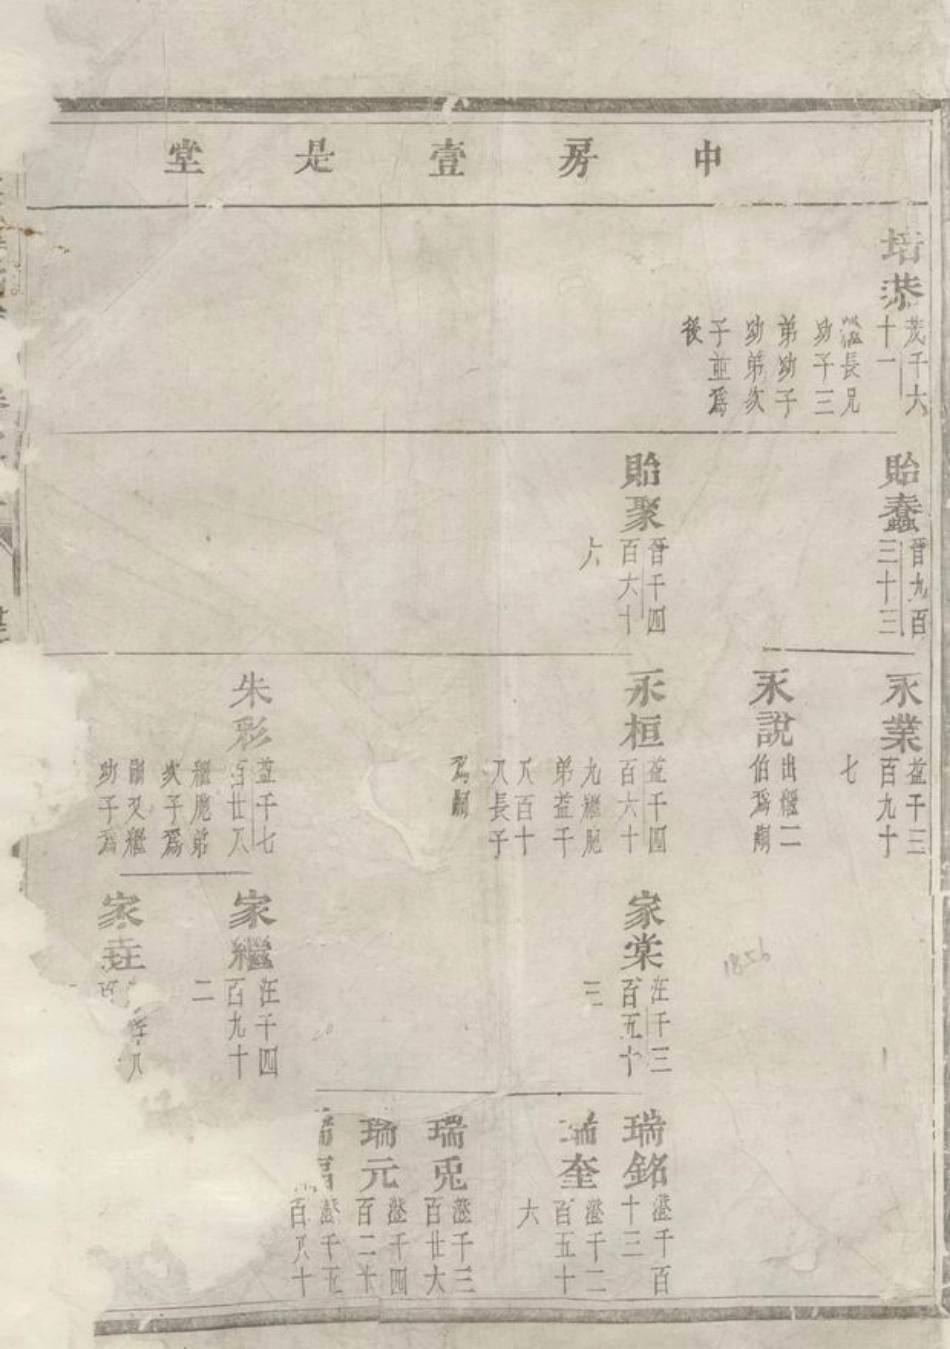 中房壹是堂
培恭
茂千六
十一
繼長兄
幼子三
弟幼子
幼弟次
子並爲
後
貽蠢
晋九百
三十三
貽聚
晋千四
百六十
六
永業
益千三
百九十
七
永說
出繼二
伯爲嗣
永桓
益千四
百六十
九繼胞
弟益千
八百十
八長子
爲嗣
朱彩
益千七
百廿八
繼胞弟
次子爲
嗣又繼
幼子爲
家棠
汪千三
百五十
三
家繼
汪千四
百九十
二
家
瑞銘
澄千百
十三
瑞奎
澄千二
百五十
六
瑞兎
澄千三
百廿六
瑞元
澄千四
百二十
澄千五
百八十
1856